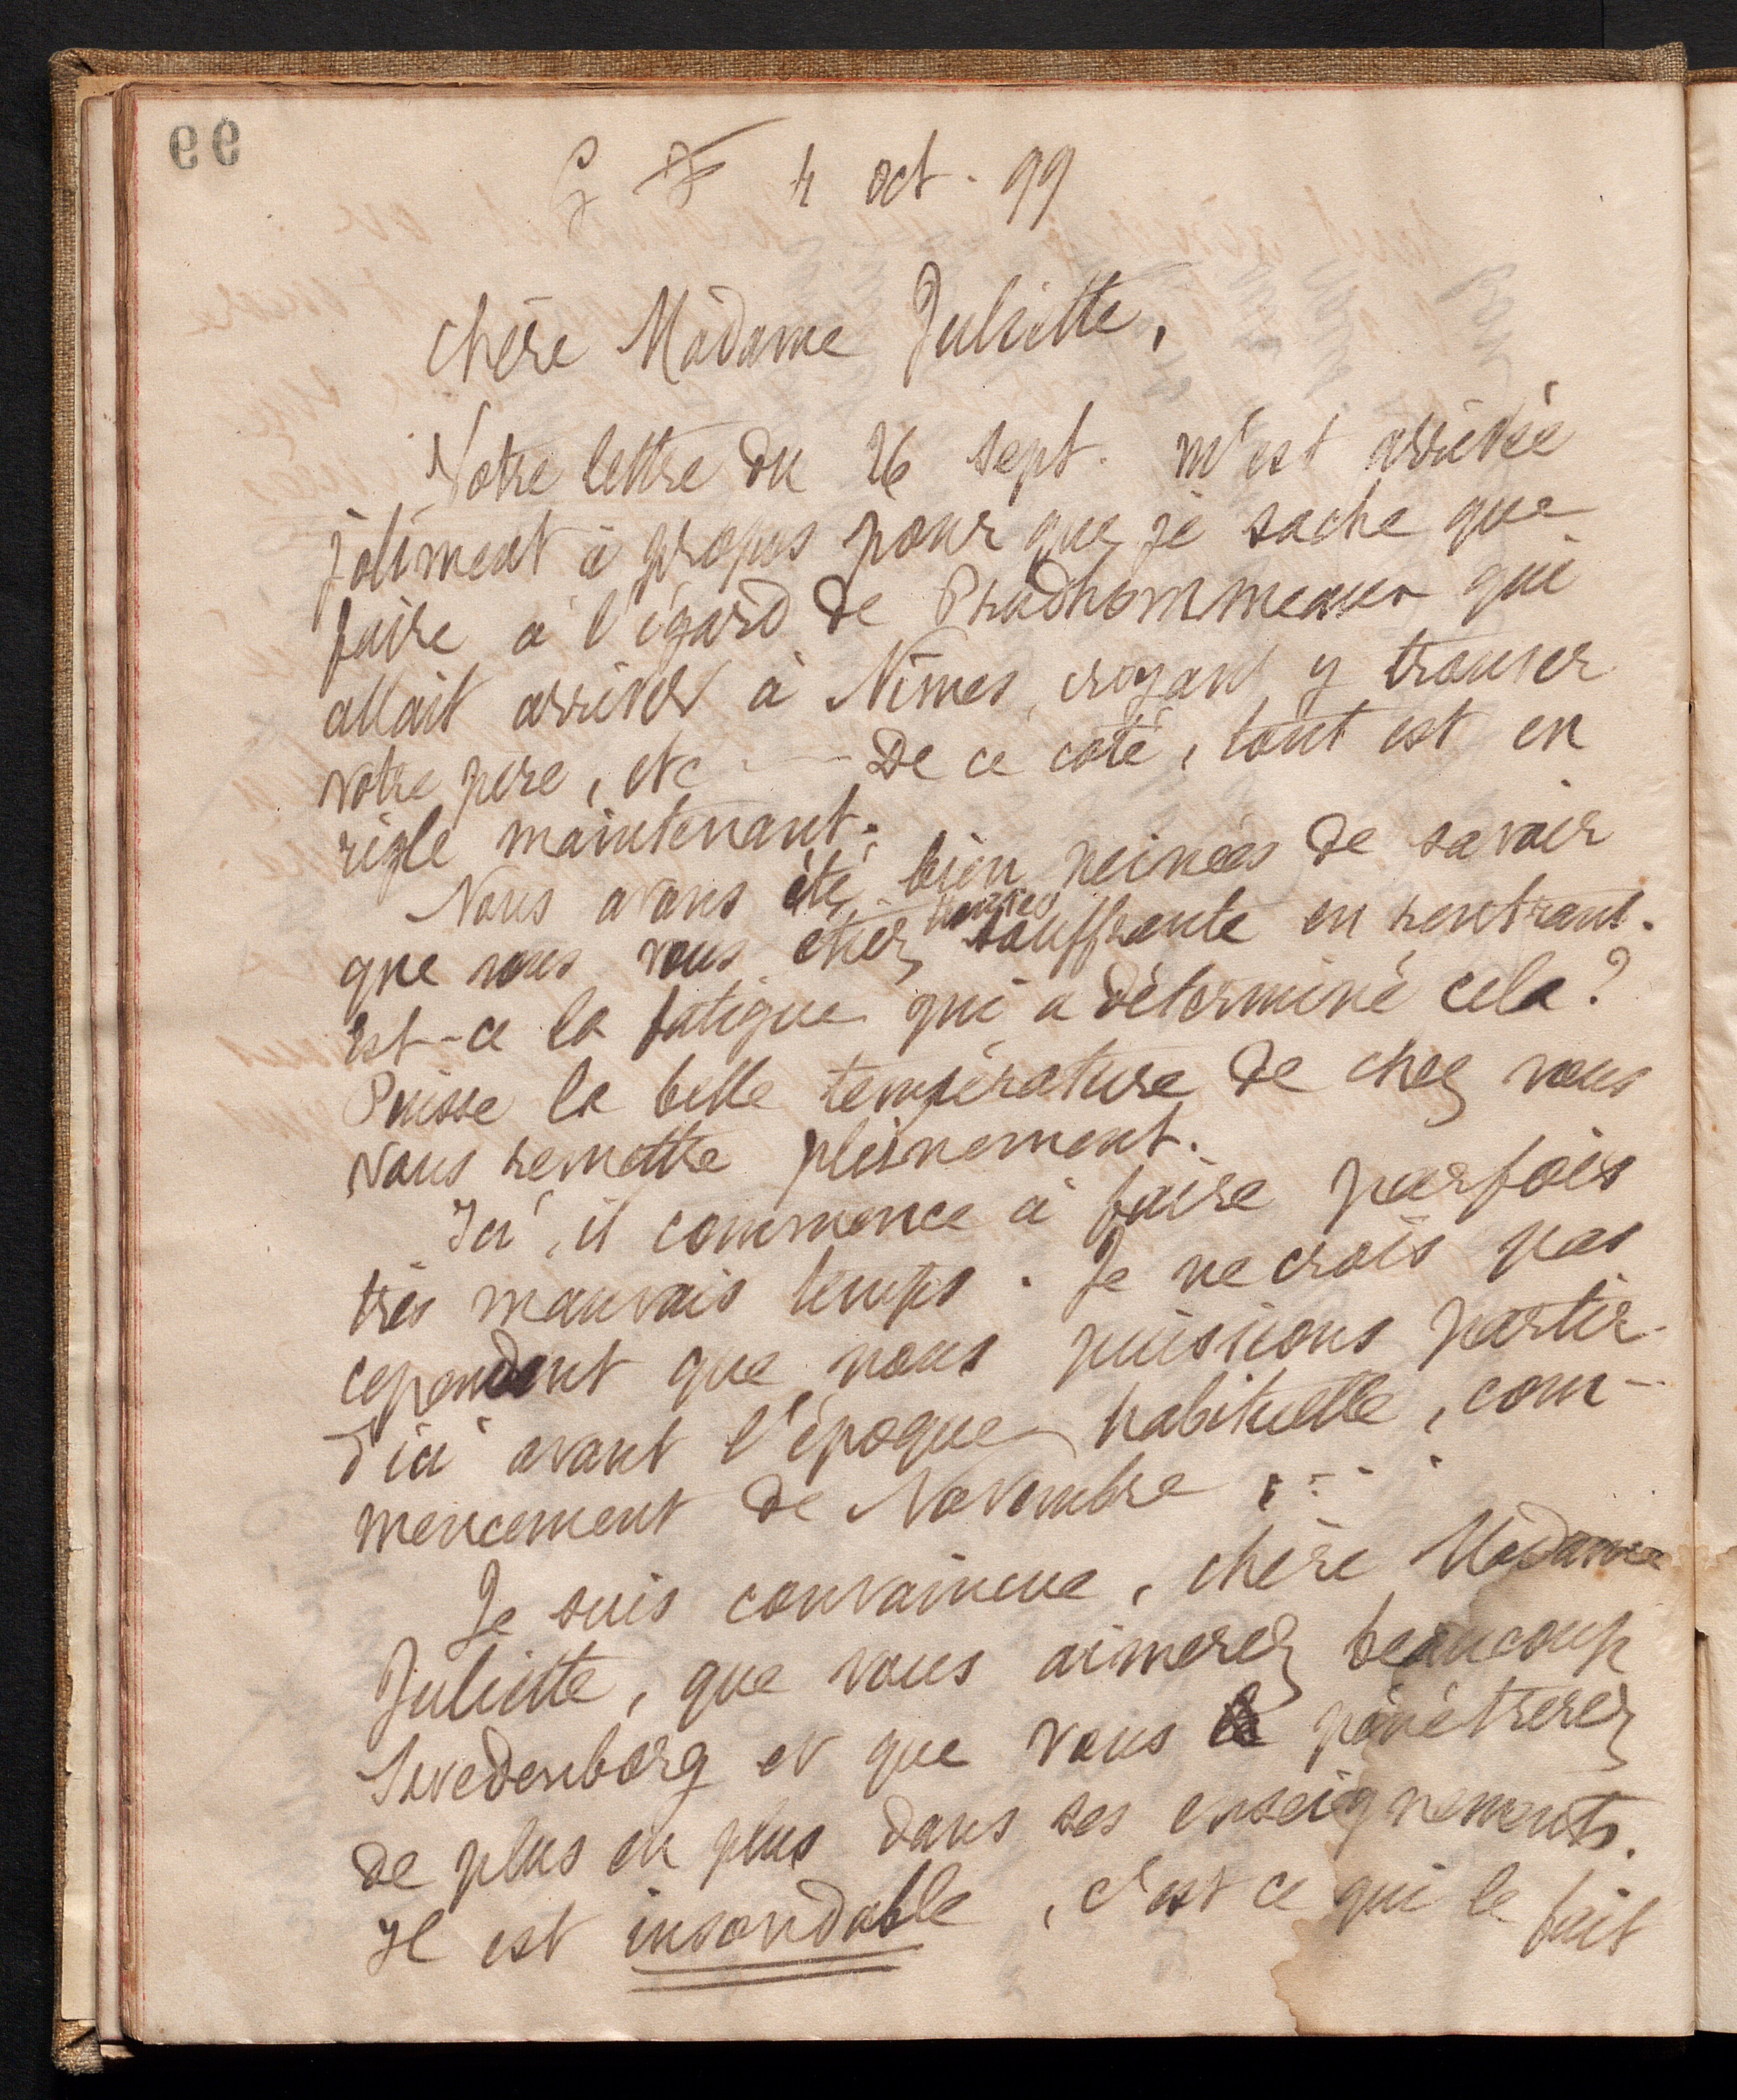 99
G F 4 oct. 99
Chère Madame Juliette,
Votre lettre du 26 sept. m'est arrivée
joliment à propos pour que je sache que
faire à l'égard de Prudhommeaux qui
allait arriver à Nîmes, croyant y trouver
votre père, etc ---- De ce côté, tout est en
règle maintenant.
Nous avons été bien peinées de savoir
que vous vous étiez trouvée souffrante en rentrant.
Est-ce la fatigue qui a déterminé cela?
Puisse la belle température de chez vous
vous remettre pleinement.
Ici, il commence à faire parfois
très mauvais temps. Je ne crois pas
cependant que nous puissions partir
d'ici avant l'époque habituelle, com-
mencement de Novembre ....
Je suis convaincue, chère Madame
Juliette, que vous aimerez beaucoup
Swedenborg et que vous pénétrerez
de plus en plus dans ses enseignements.
Il est insondable, c'est ce qui le fait